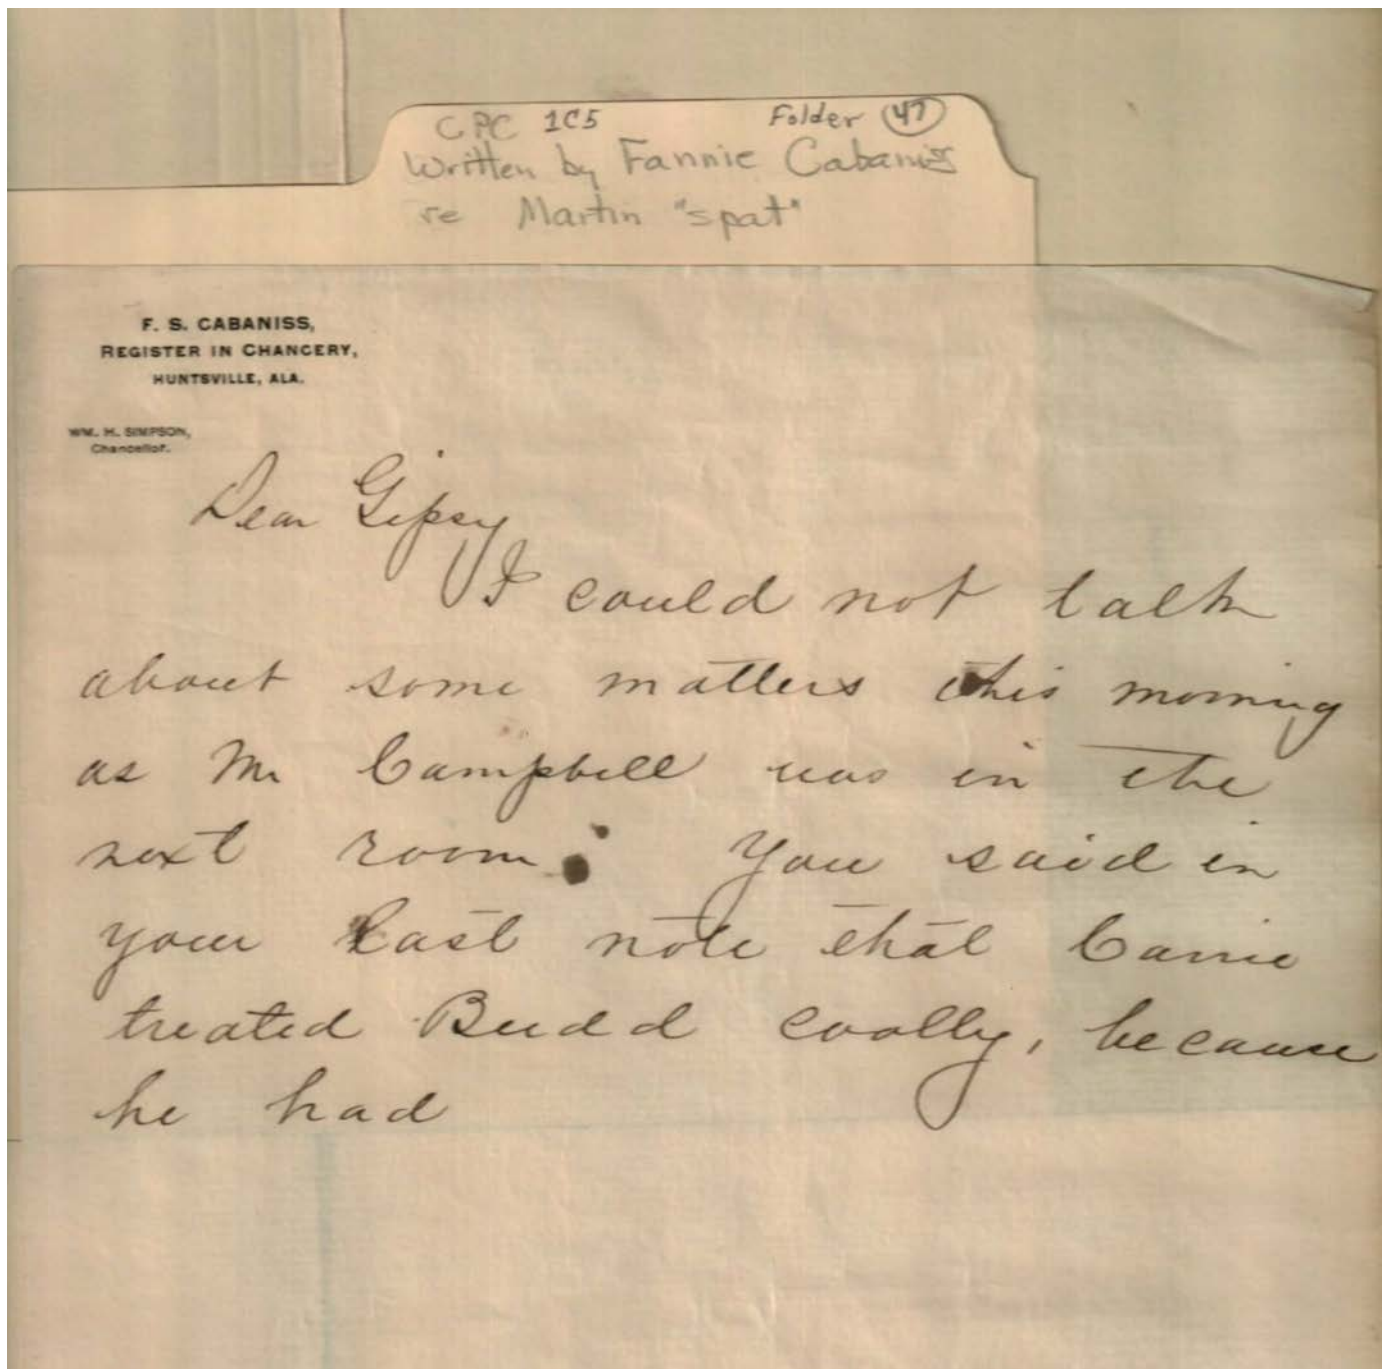 CPC 1C5 Folder 47
Written by Fannie Cabaniss
re Martin "spat"
F. S. CABANISS,
REGISTER IN CHANCERY,
HUNTSVILLE, ALA.
WM. H. SIMPSON,
Chancellor.
Dear Gipsy
I could not talk
about some matters this morning
as Mr Campbell was in the
next room. You said in
your last note that Carrie
treated Budd coolly, because
he had